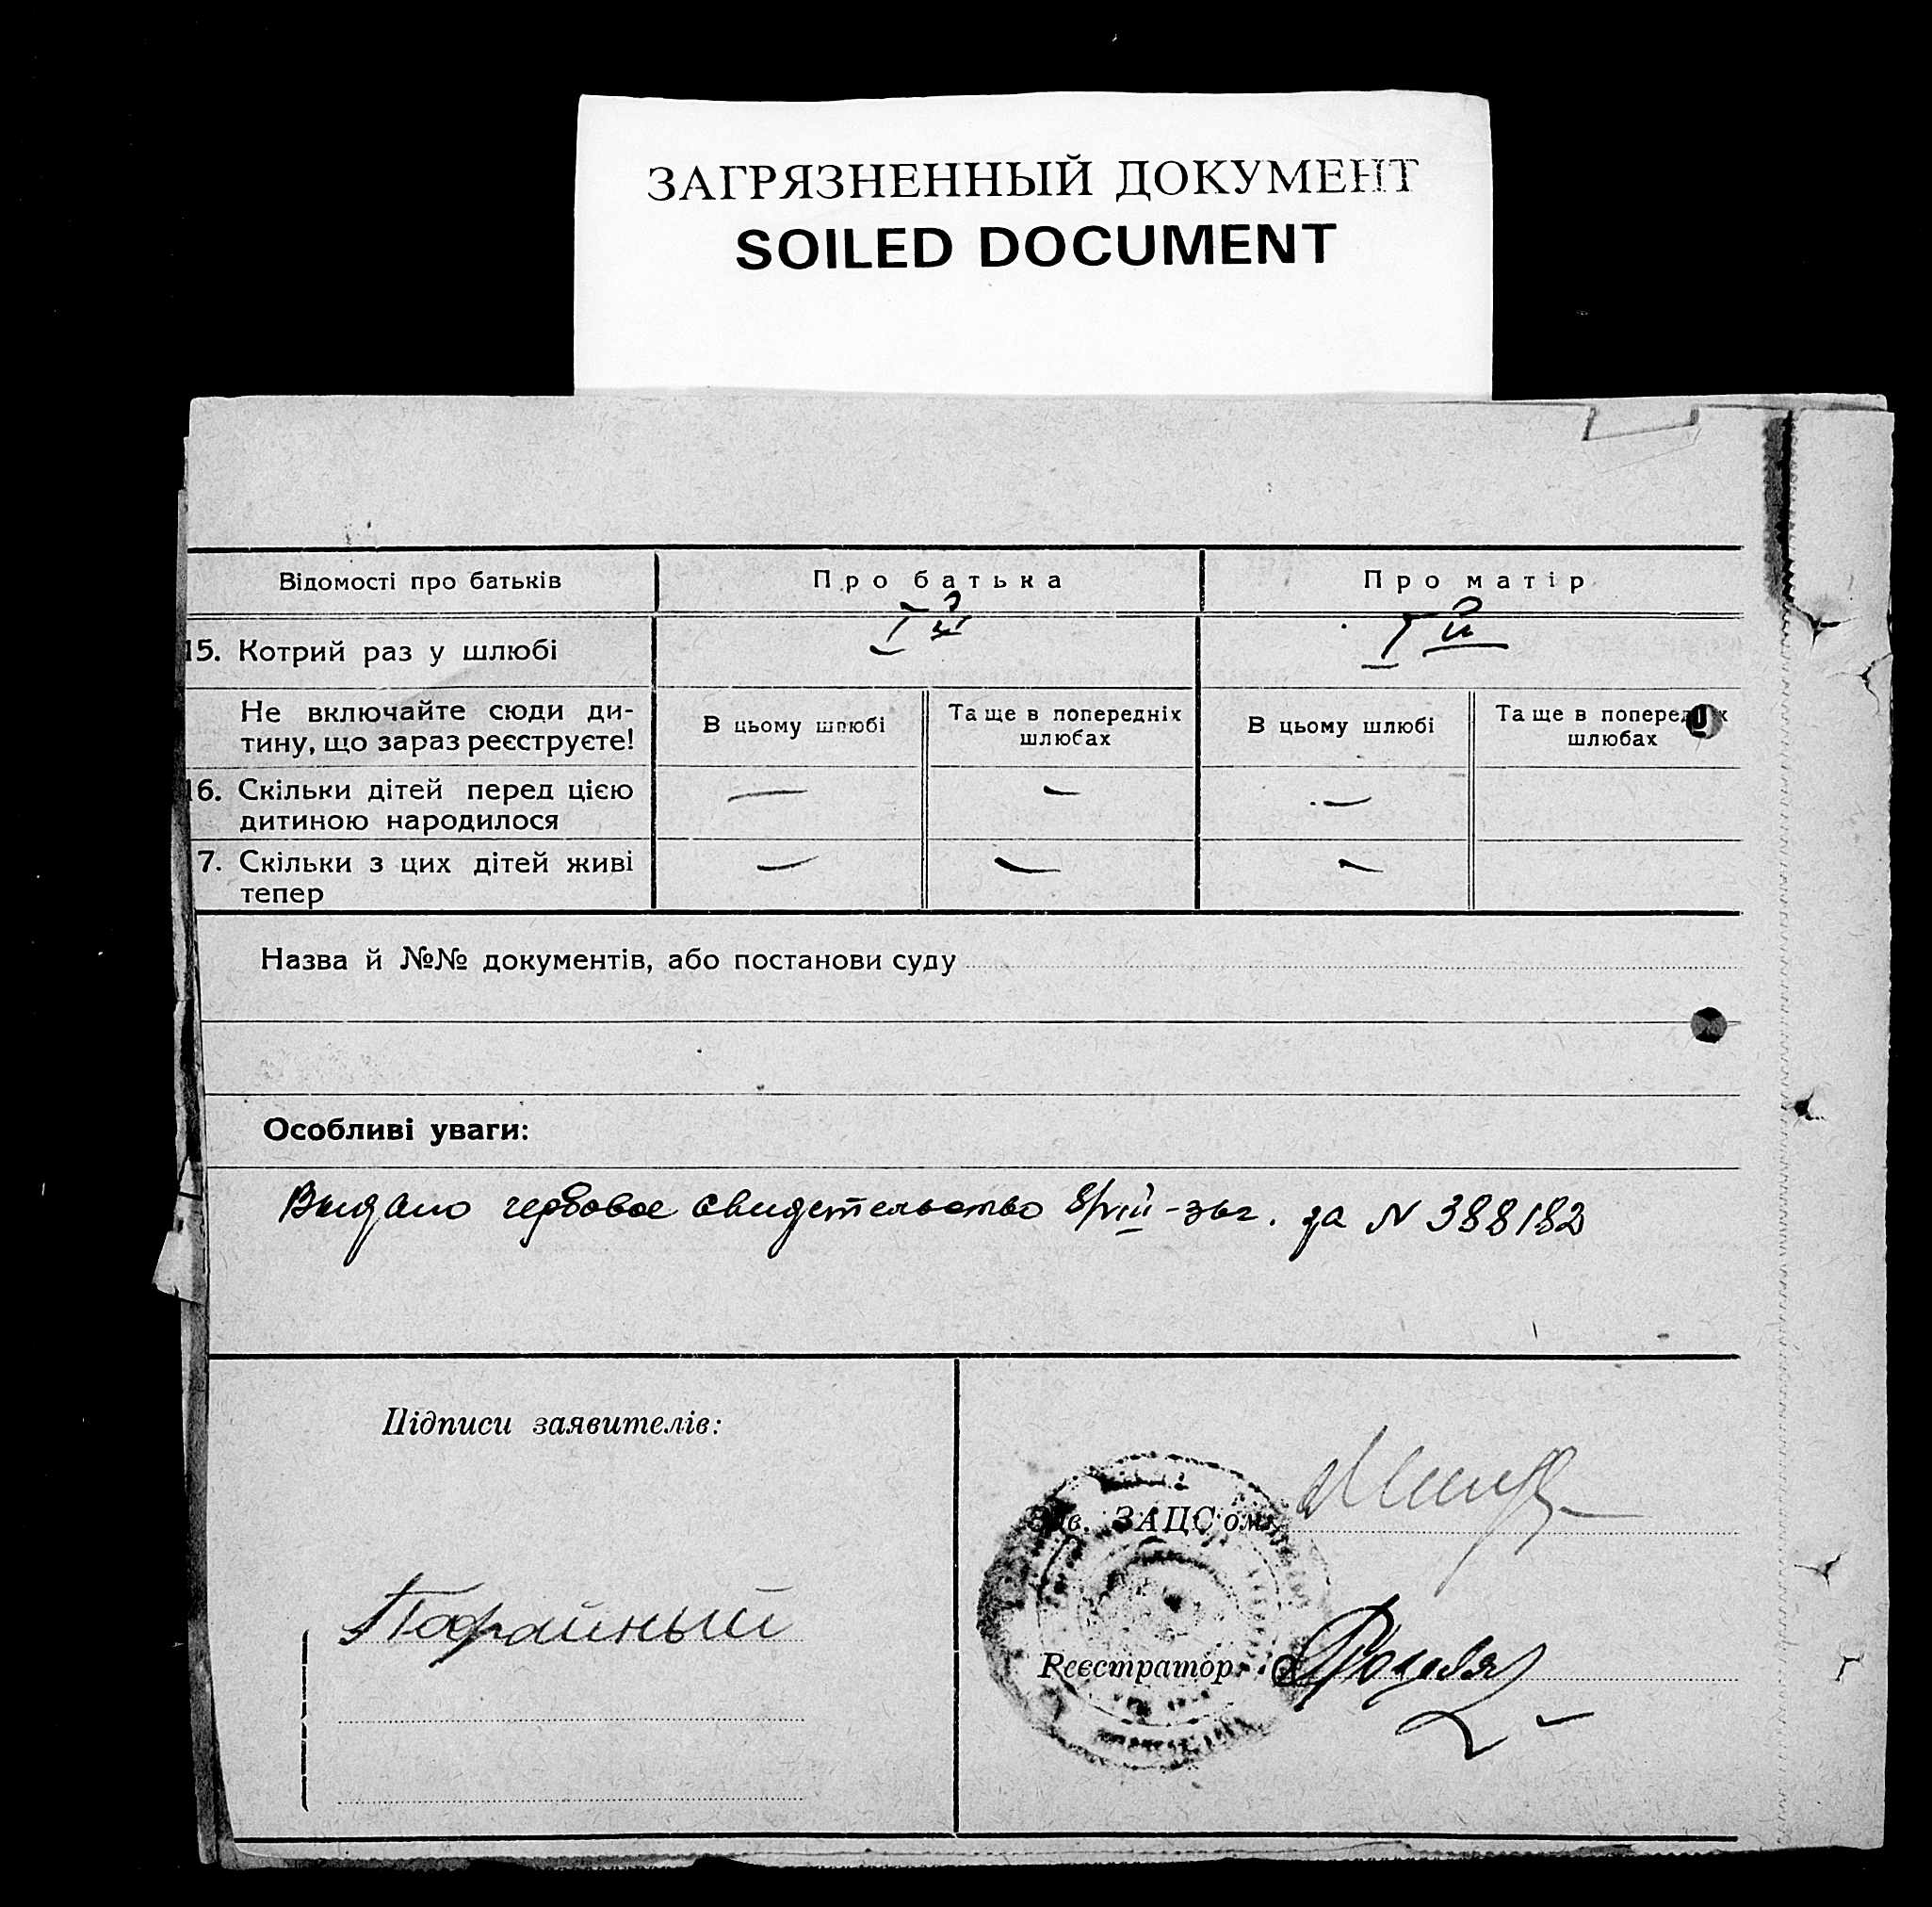 ЗАГРЯЗНЕННЫЙ ДОКУМЕНТ
SOILED DOCUMENT
Відомості про батьків
Про батька
Про матір
15. Котрий раз у шлюбі
I й
I й
Не включайте сюди ди-
тину, що зараз реєструєте!
В цьому шлюбі
Та ще в попередніх
шлюбах
В цьому шлюбі
Та ще в попередніх
шлюбах
16. Скільки дітей перед цією
дитиною народилося
— — —
7. Скільки з цих дітей живі
тепер
— — —
Назва й №№ документів, або постанови суду
Особливі уваги:
Выдано гербовое свидетельство 8/VIII-36г. за N 388182
Підписи заявителів:
Зав. ЗАЦС'ом
Реєстратор